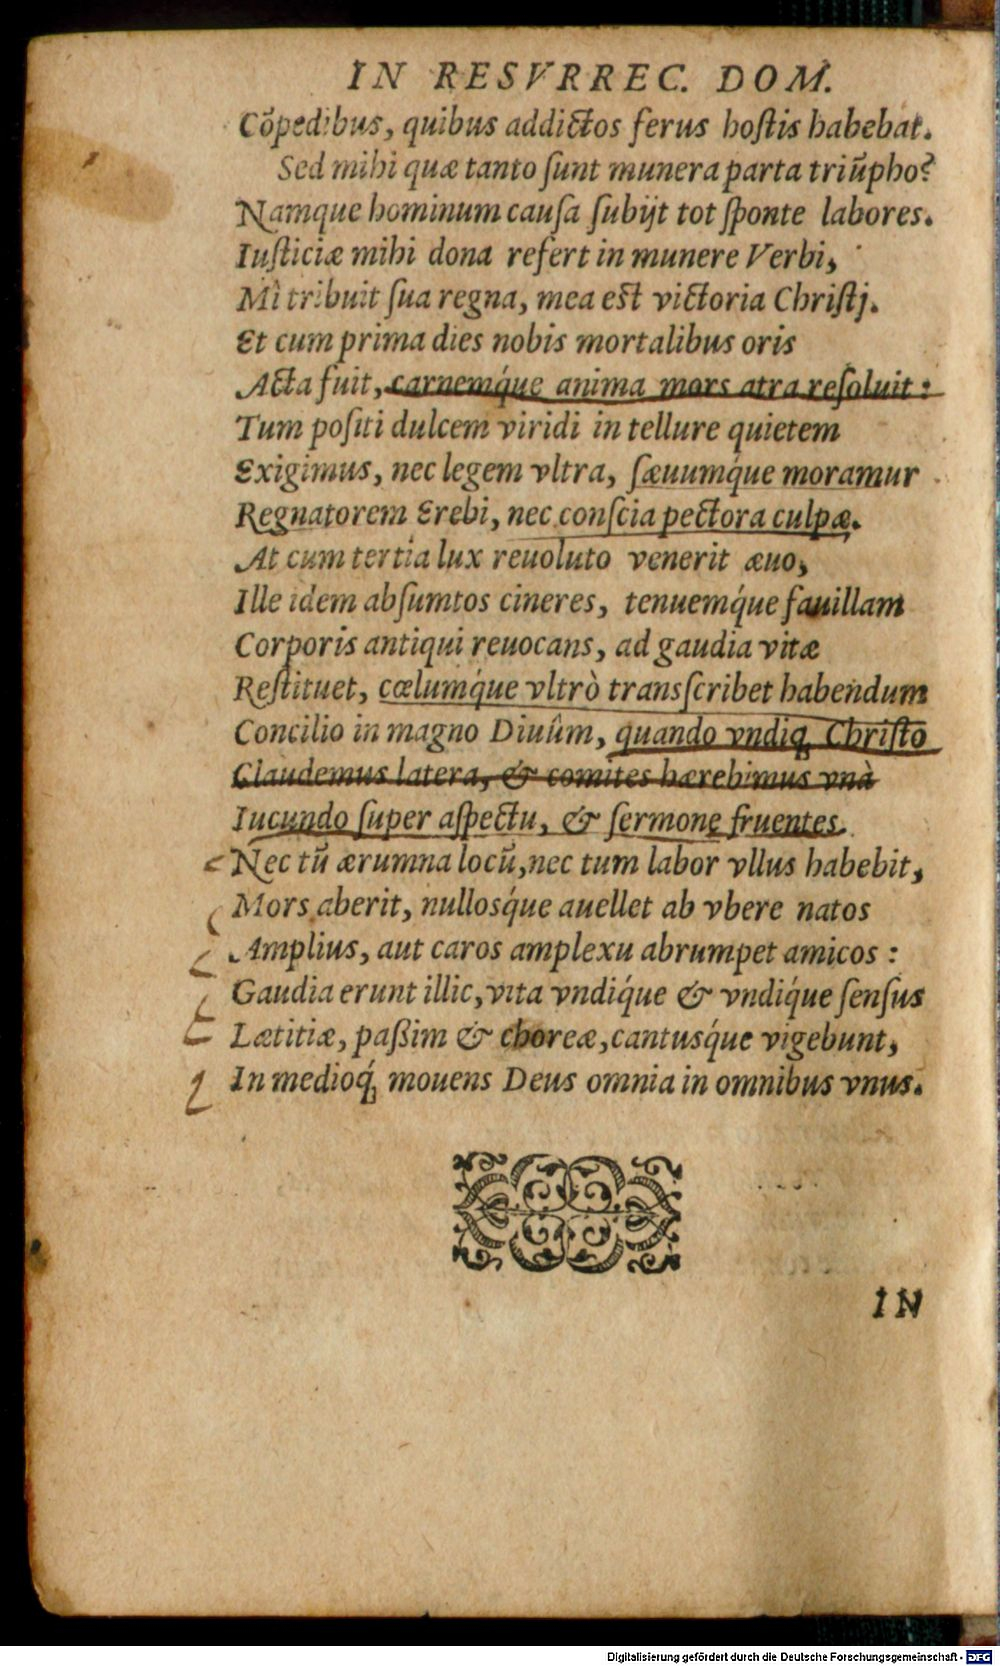 IN RESVRREC. DOM.
Cõpedibus, quibus addictos ferus hoſtis habebat.
Sed mihi quæ tanto ſunt munera parta triũpho?
Namque hominum cauſa ſubijt tot ſponte labores.
Iuſticiæ mihi dona refert in munere Verbi,
Mî tribuit ſua regna, mea eſt victoria Chriſtj.
Et cum prima dies nobis mortalibus oris
Acta fuit, carnemq́ue anima mors atra reſoluit:
Tum poſiti dulcem viridi in tellure quietem
Exigimus, nec legem vltra, ſæuumq́ue moramur
Regnatorem Erebi, nec conſcia pectora culpæ.
At cum tertia lux reuoluto venerit æuo,
Ille idem abſumtos cineres, tenuemq́ue fauillam
Corporis antiqui reuocans, ad gaudia vitæ
Reſtituet, cœlumq́ue vltrò transſcribet habendum
Concilio in magno Diuûm, quando vndiq; Chriſto
Claudemus latera, & comites hærebimus vnà
Iucundo ſuper aſpectu, & ſermone fruentes.
Nec tũ ærumna locũ, nec tum labor vllus habebit,
Mors aberit, nulloſq́ue auellet ab vbere natos
Amplius, aut caros amplexu abrumpet amicos:
Gaudia erunt illic, vita vndiq́ue & vndiq́ue ſenſus
Lætitiæ, paßim & choreæ, cantuſq́ue vigebunt,
In medioq́; mouens Deus omnia in omnibus vnus.
IN
Digitalisierung gefördert durch die Deutsche Forschungsgemeinschaft - DFG